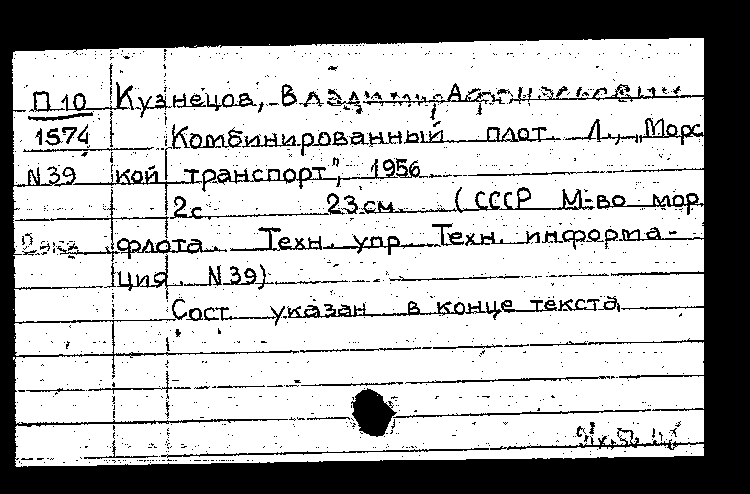 П 10 Кузнецов, Владимир Афанасьевич
1574 Комбинированный плот. Л., „Морс
N39 кой транспорт", 1956.
2с. 23см. (СССР М-во мор.
2 экз. флота. Техн. упр. Техн. информа-
ция. N39)
Сост. указан в конце текста.